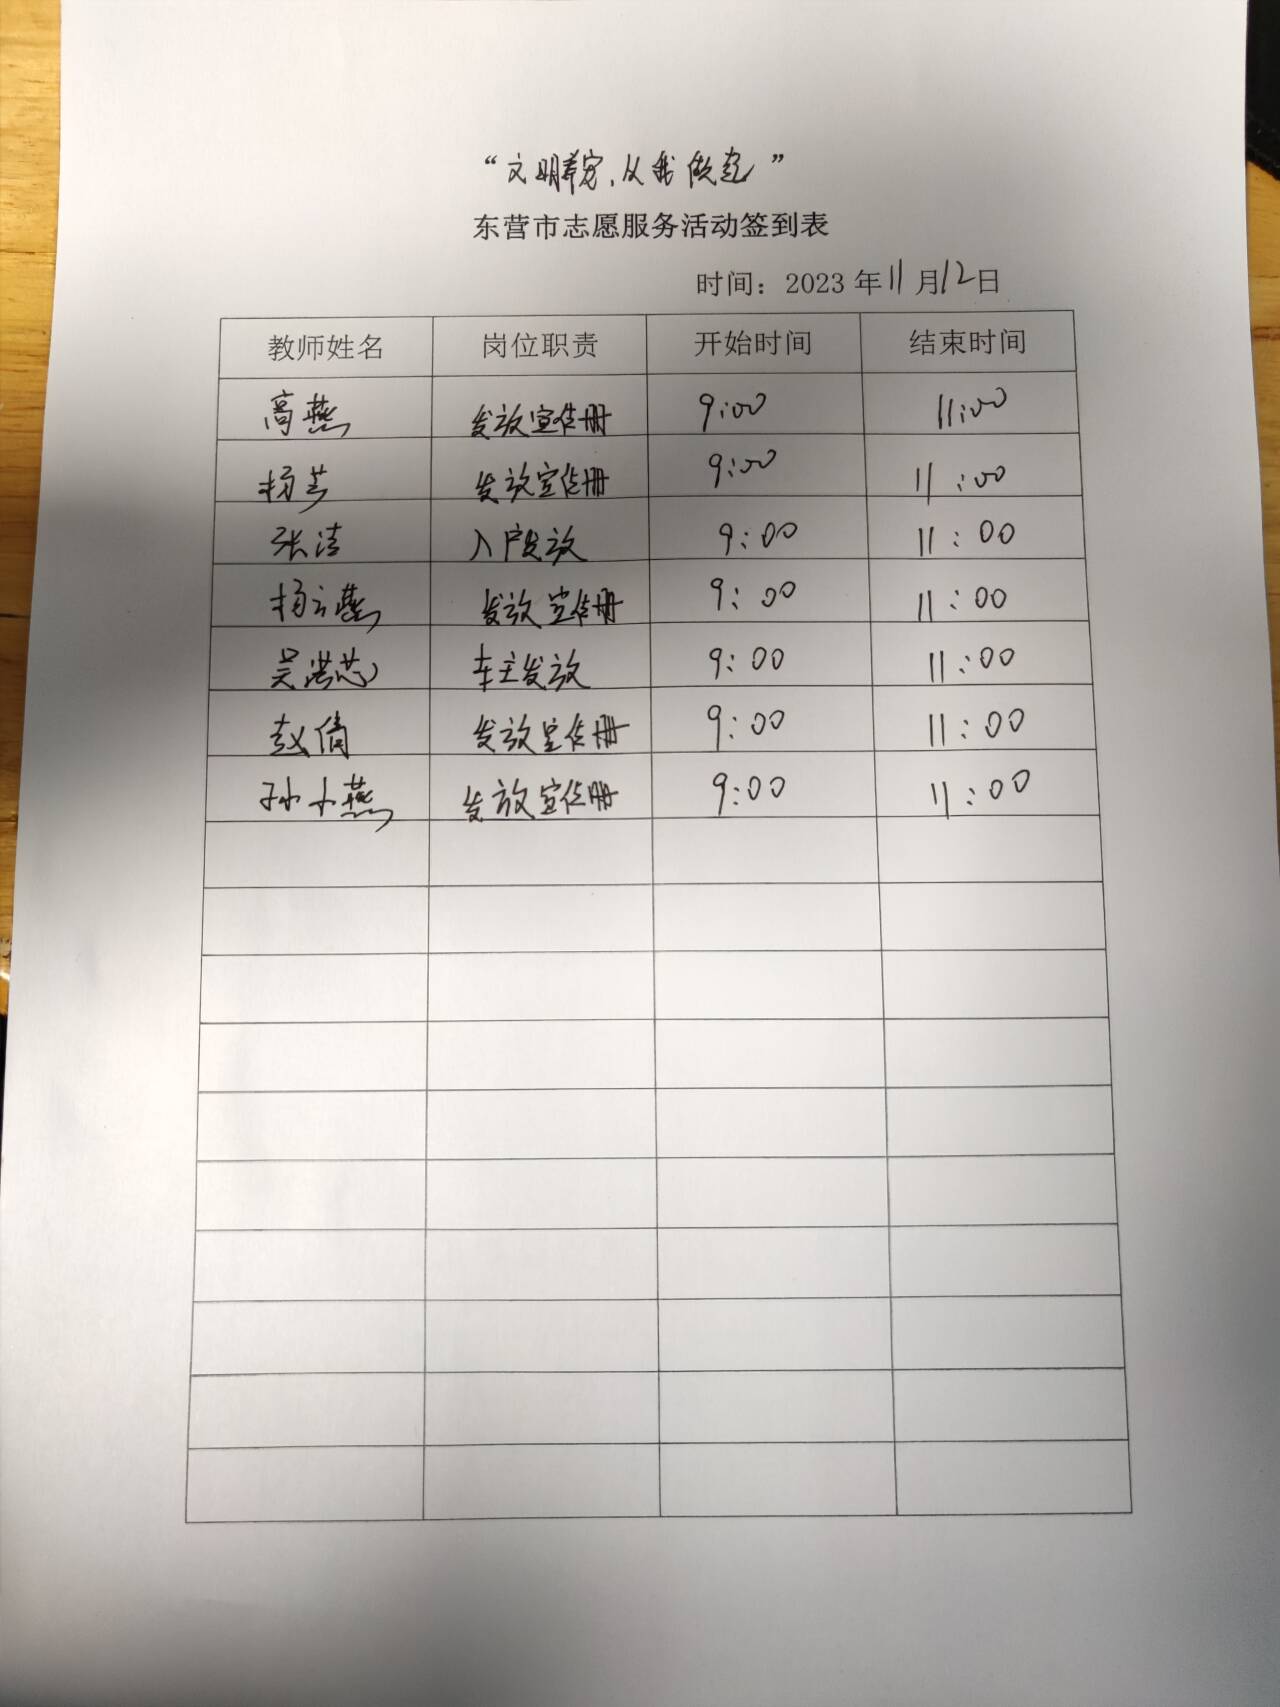 “文明养宠，从我做起”
东营市志愿服务活动签到表
时间：2023年11月12日
教师姓名 岗位职责 开始时间 结束时间
高燕 发放宣传册 9:00 11:00
杨芳 发放宣传册 9:00 11:00
张洁 入户发放 9:00 11:00
杨云燕 发放宣传册 9:00 11:00
吴洪芯 车主发放 9:00 11:00
赵倩 发放宣传册 9:00 11:00
孙小燕 发放宣传册 9:00 11:00